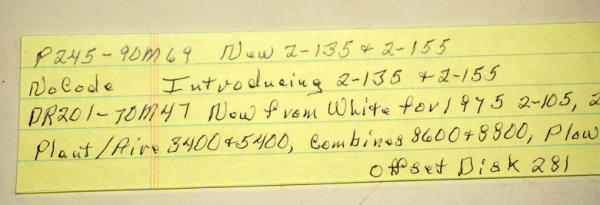 P245-90M69 New 2-135 & 2-155
NoCode Introducing 2-135 & 2-155
DR201-70M47 New from White for 1975 2-105, 2
Plant/Aire 3400 & 5400, Combines 8600 & 8800, Plow
Offset Disk 281